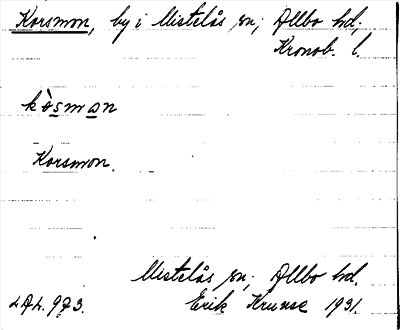 Korsmon, by i Mistelås sn; Allbo hd;
Kronob. l.
kòsmon
Korsmon.
Mistelås sn; Allbo hd.
Erik Krunse 1931.